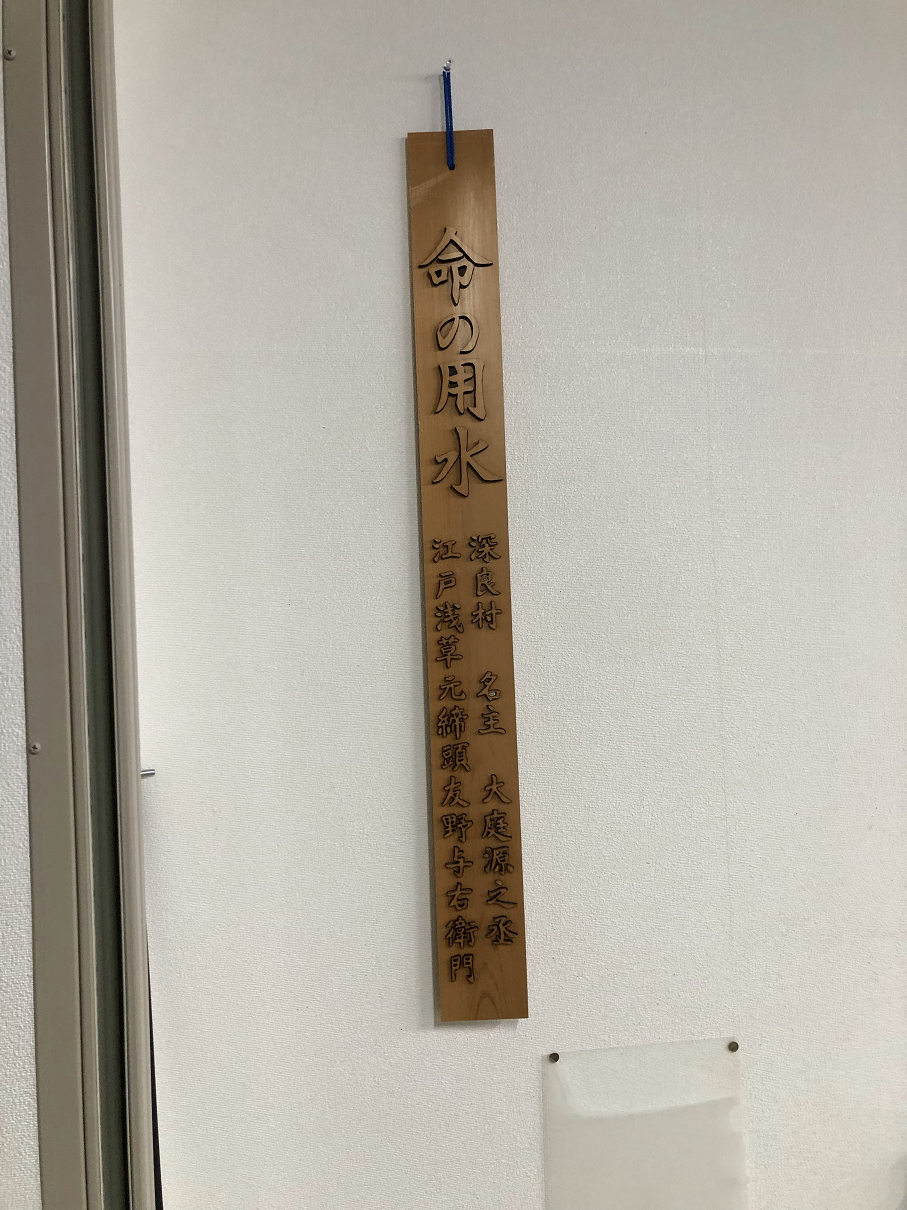 命の用水
深良村 名主 大庭源之丞
江戸浅草元締頭友野与右衛門